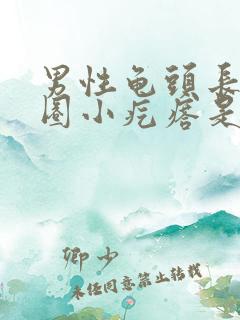 男性龟頭長
圈小疙瘩是
卿少
未任同意禁止转载